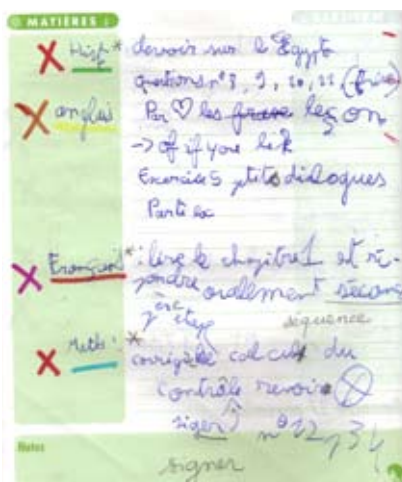 MATIÈRES :
Hist* devoir sur le Egypte
questions n° 8, 9, 10, 11 (frise)
anglais Par ♡ les frase leçon
-> of if you lik
Exercice 5 ptits dialogues
Partie
Français* : lire le chapitre 1 et ré-
pondre oralement secons
1ère etap séquence
Maths : * corrigé le calculs du
contrôle revoir
siger) n° 12, 34
Notes
signer